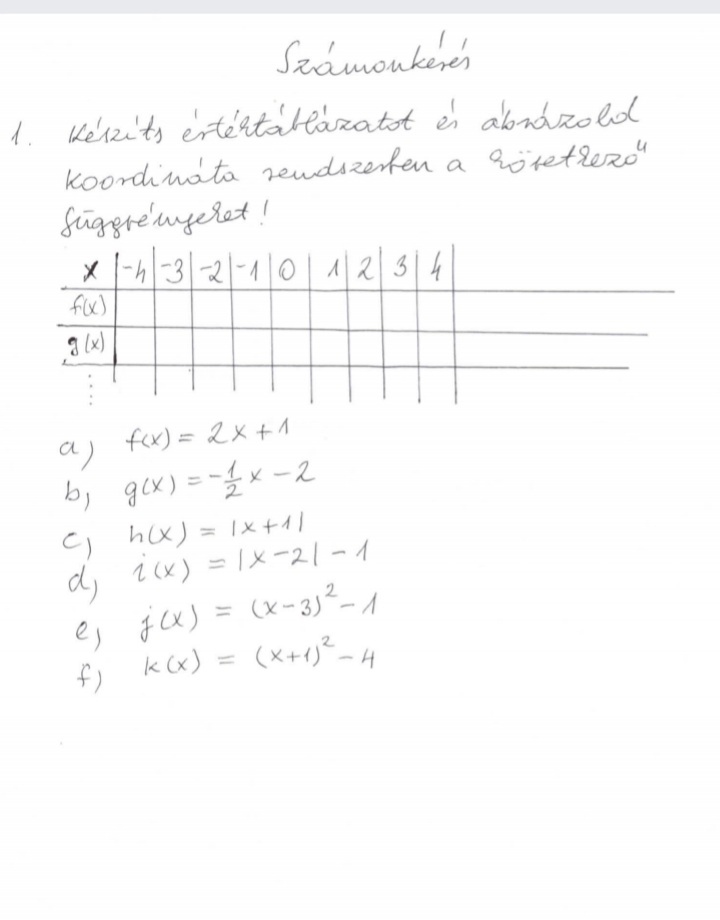 Számonkérés
1. Készíts értéktáblázatot és ábrázold
koordináta rendszerben a következő
függvényeket!
x -4 -3 -2 -1 0 1 2 3 4
f(x)
g(x)
⋮
a) f(x) = 2x+1
b) g(x) = -1/2 x - 2
c) h(x) = |x+1|
d) i(x) = |x-2| - 1
e) j(x) = (x-3)² - 1
f) k(x) = (x+1)² - 4